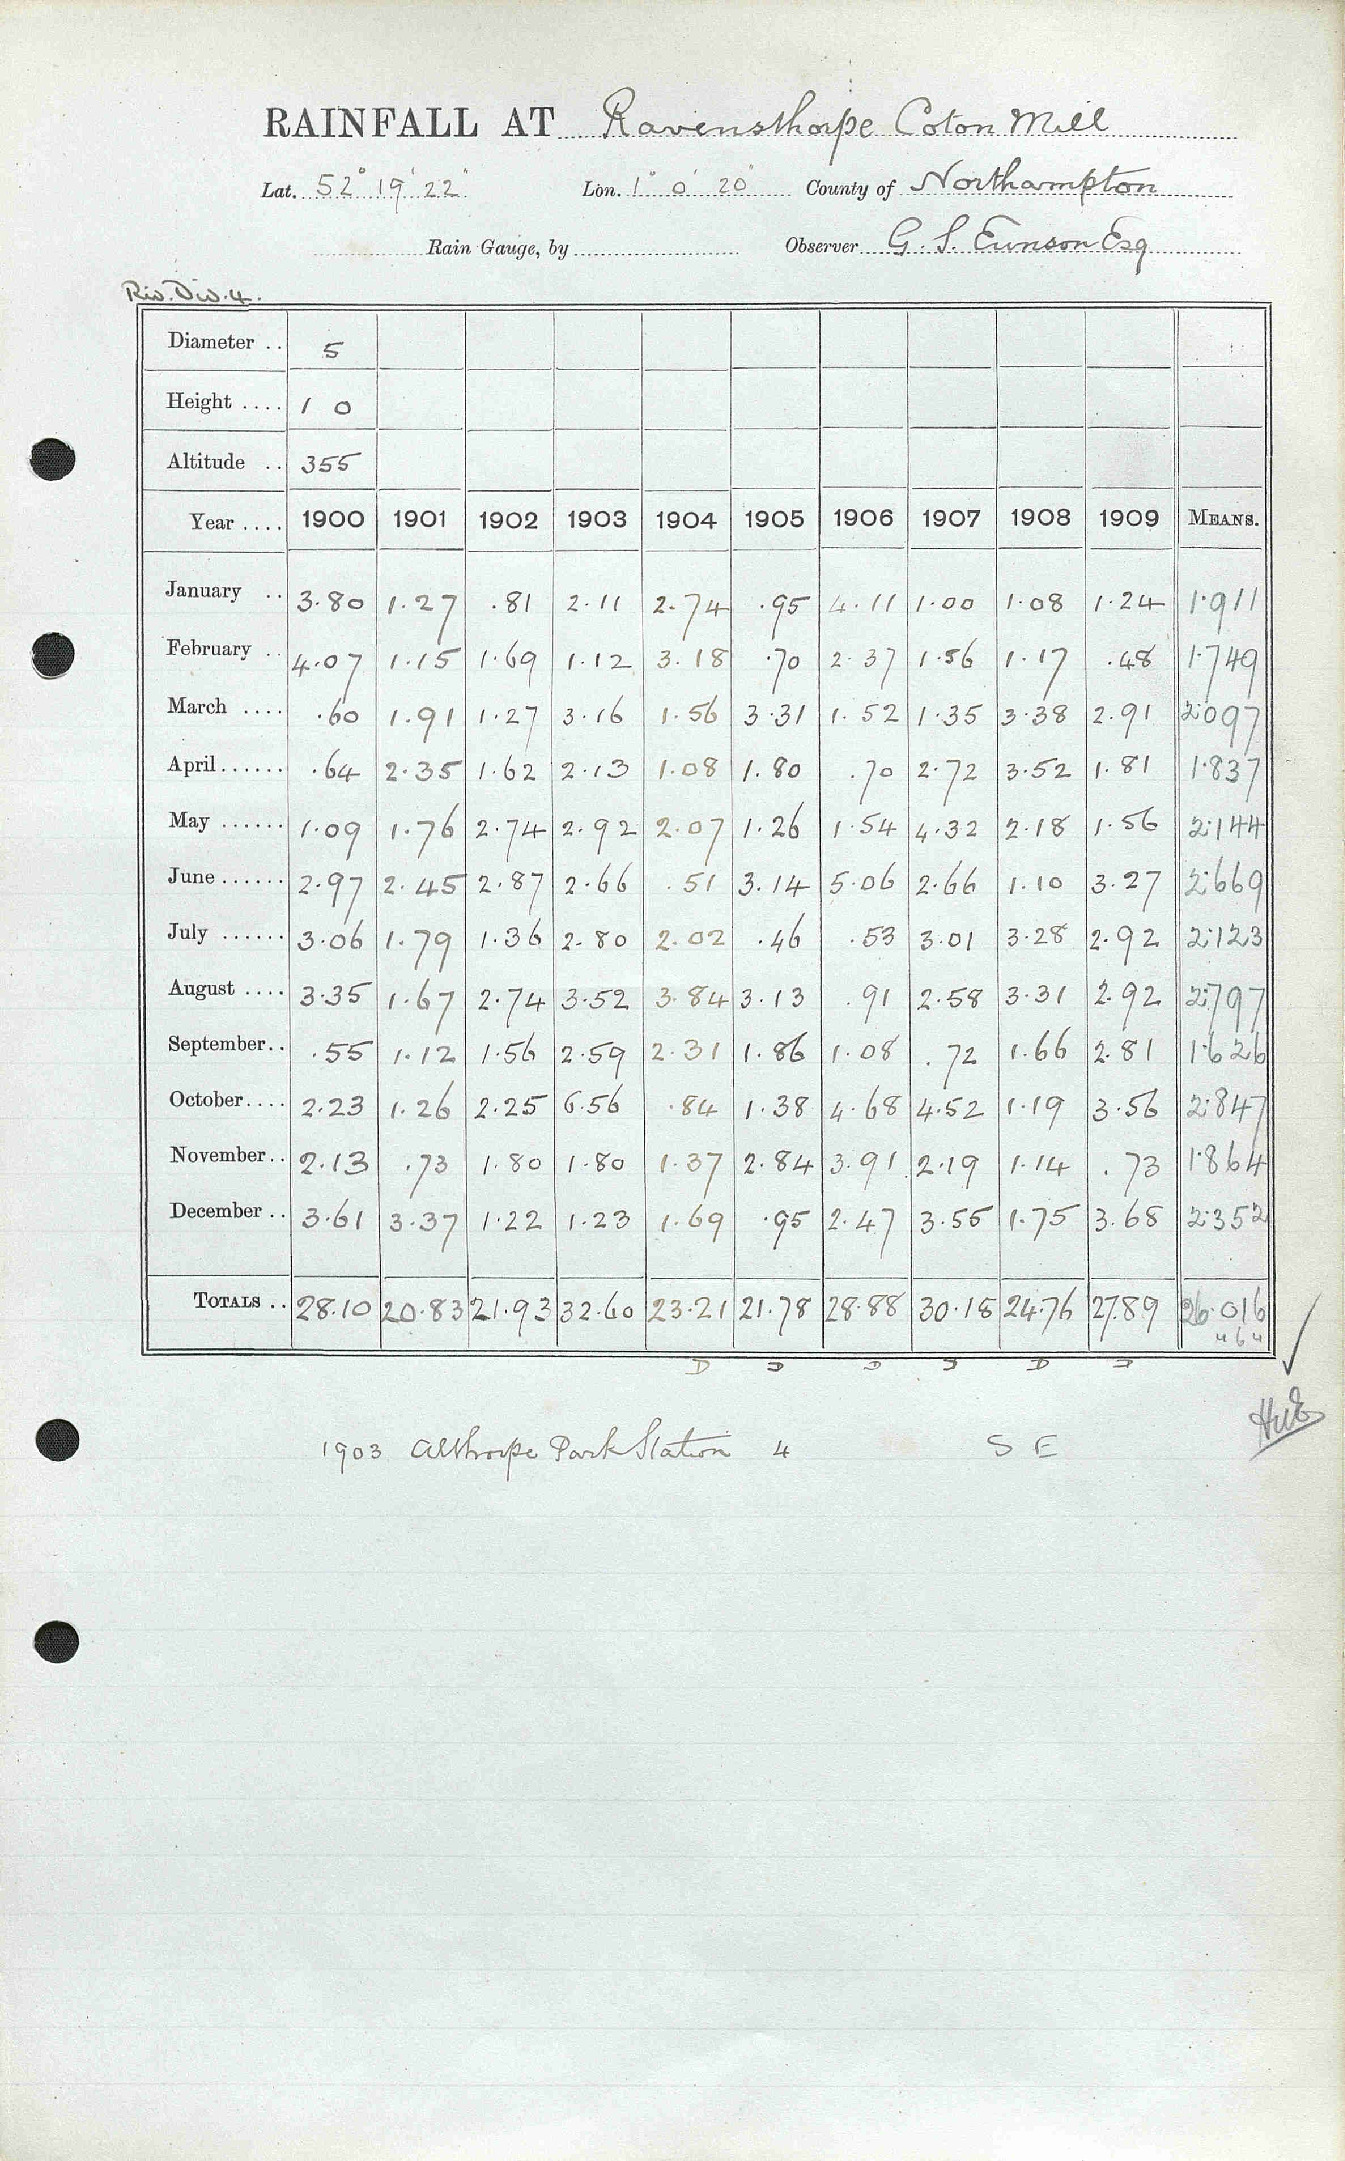 RAINFALL AT Ravensthorpe Coton Mill
Lat. 52° 19' 22" Lon. 1° 0' 20" County of Northampton
Rain Gauge, by Observer G. S. Eunson Esq
Riv. Div. 4.
Diameter .. 5
Height .... 1 0
Altitude .. 355
Year .... 1900 1901 1902 1903 1904 1905 1906 1907 1908 1909 MEANS.
January .. 3.80 1.27 .81 2.11 2.74 .95 4.11 1.00 1.08 1.24 1.911
February .. 4.07 1.15 1.69 1.12 3.18 .70 2.37 1.56 1.17 .48 1.749
March .... .60 1.91 1.27 3.16 1.56 3.31 1.52 1.35 3.38 2.91 2.097
April...... .64 2.35 1.62 2.13 1.08 1.80 .70 2.72 3.52 1.81 1.837
May ...... 1.09 1.76 2.74 2.92 2.07 1.26 1.54 4.32 2.18 1.56 2.144
June...... 2.97 2.45 2.87 2.66 .51 3.14 5.06 2.66 1.10 3.27 2.669
July ...... 3.06 1.79 1.36 2.80 2.02 .46 .53 3.01 3.28 2.92 2.123
August .... 3.35 1.67 2.74 3.52 3.84 3.13 .91 2.58 3.31 2.92 2.797
September.. .55 1.12 1.56 2.59 2.31 1.86 1.08 .72 1.66 2.81 1.626
October.... 2.23 1.26 2.25 6.56 .84 1.38 4.68 4.52 1.19 3.56 2.847
November.. 2.13 .73 1.80 1.80 1.37 2.84 3.91 2.19 1.14 .73 1.864
December .. 3.61 3.37 1.22 1.23 1.69 .95 2.47 3.55 1.75 3.68 2.352
TOTALS .. 28.10 20.83 21.93 32.60 23.21 21.78 28.88 30.18 24.76 27.89 26.016
D D D D D
1903 Althorpe Park Station 4 S E